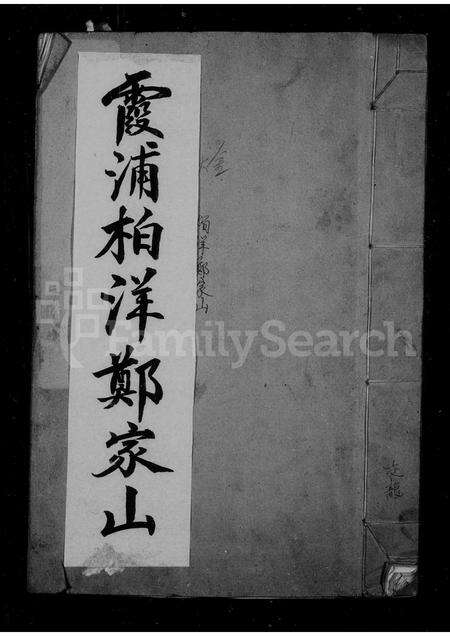 霞浦柏洋鄭家山
柏洋鄭家山
FamilySearch